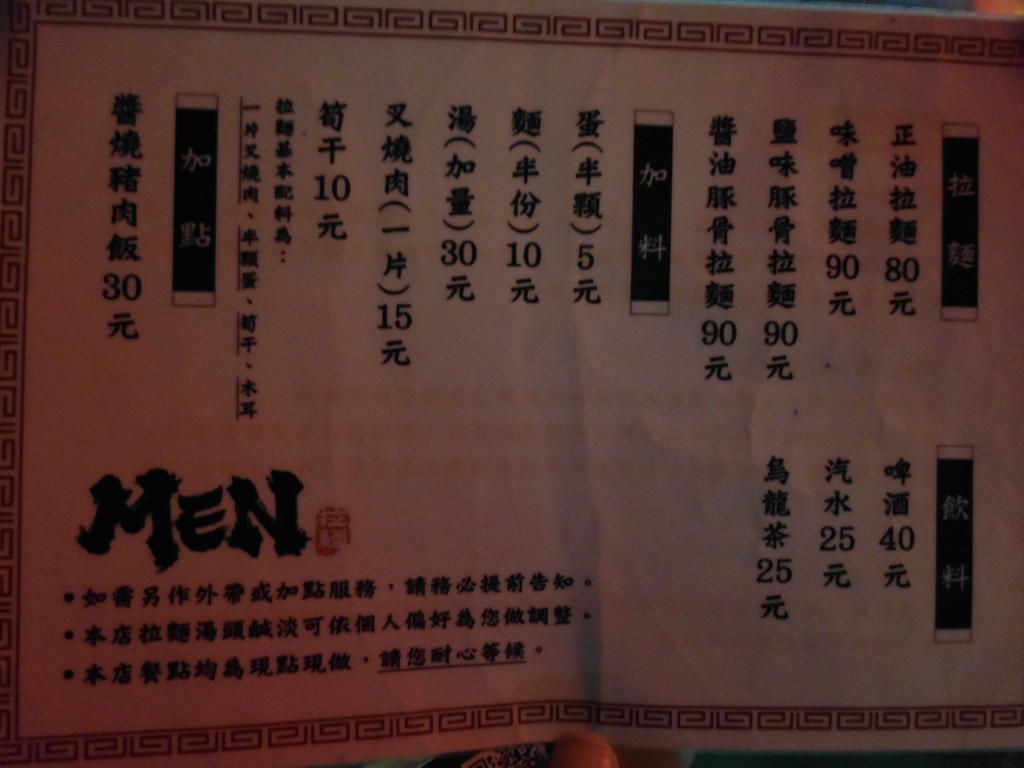 拉麵
正油拉麵80元
味噌拉麵90元
鹽味豚骨拉麵90元
醬油豚骨拉麵90元
飲料
啤酒40元
汽水25元
烏龍茶25元
加料
蛋(半顆)5元
麵(半份)10元
湯(加量)30元
叉燒肉(一片)15元
筍干10元
拉麵基本配料為：
一片叉燒肉、半顆蛋、筍干、木耳
加點
醬燒豬肉飯30元
MEN
•如需另作外帶或加點服務，請務必提前告知。
•本店拉麵湯頭鹹淡可依個人偏好為您做調整。
•本店餐點均為現點現做，請您耐心等候。